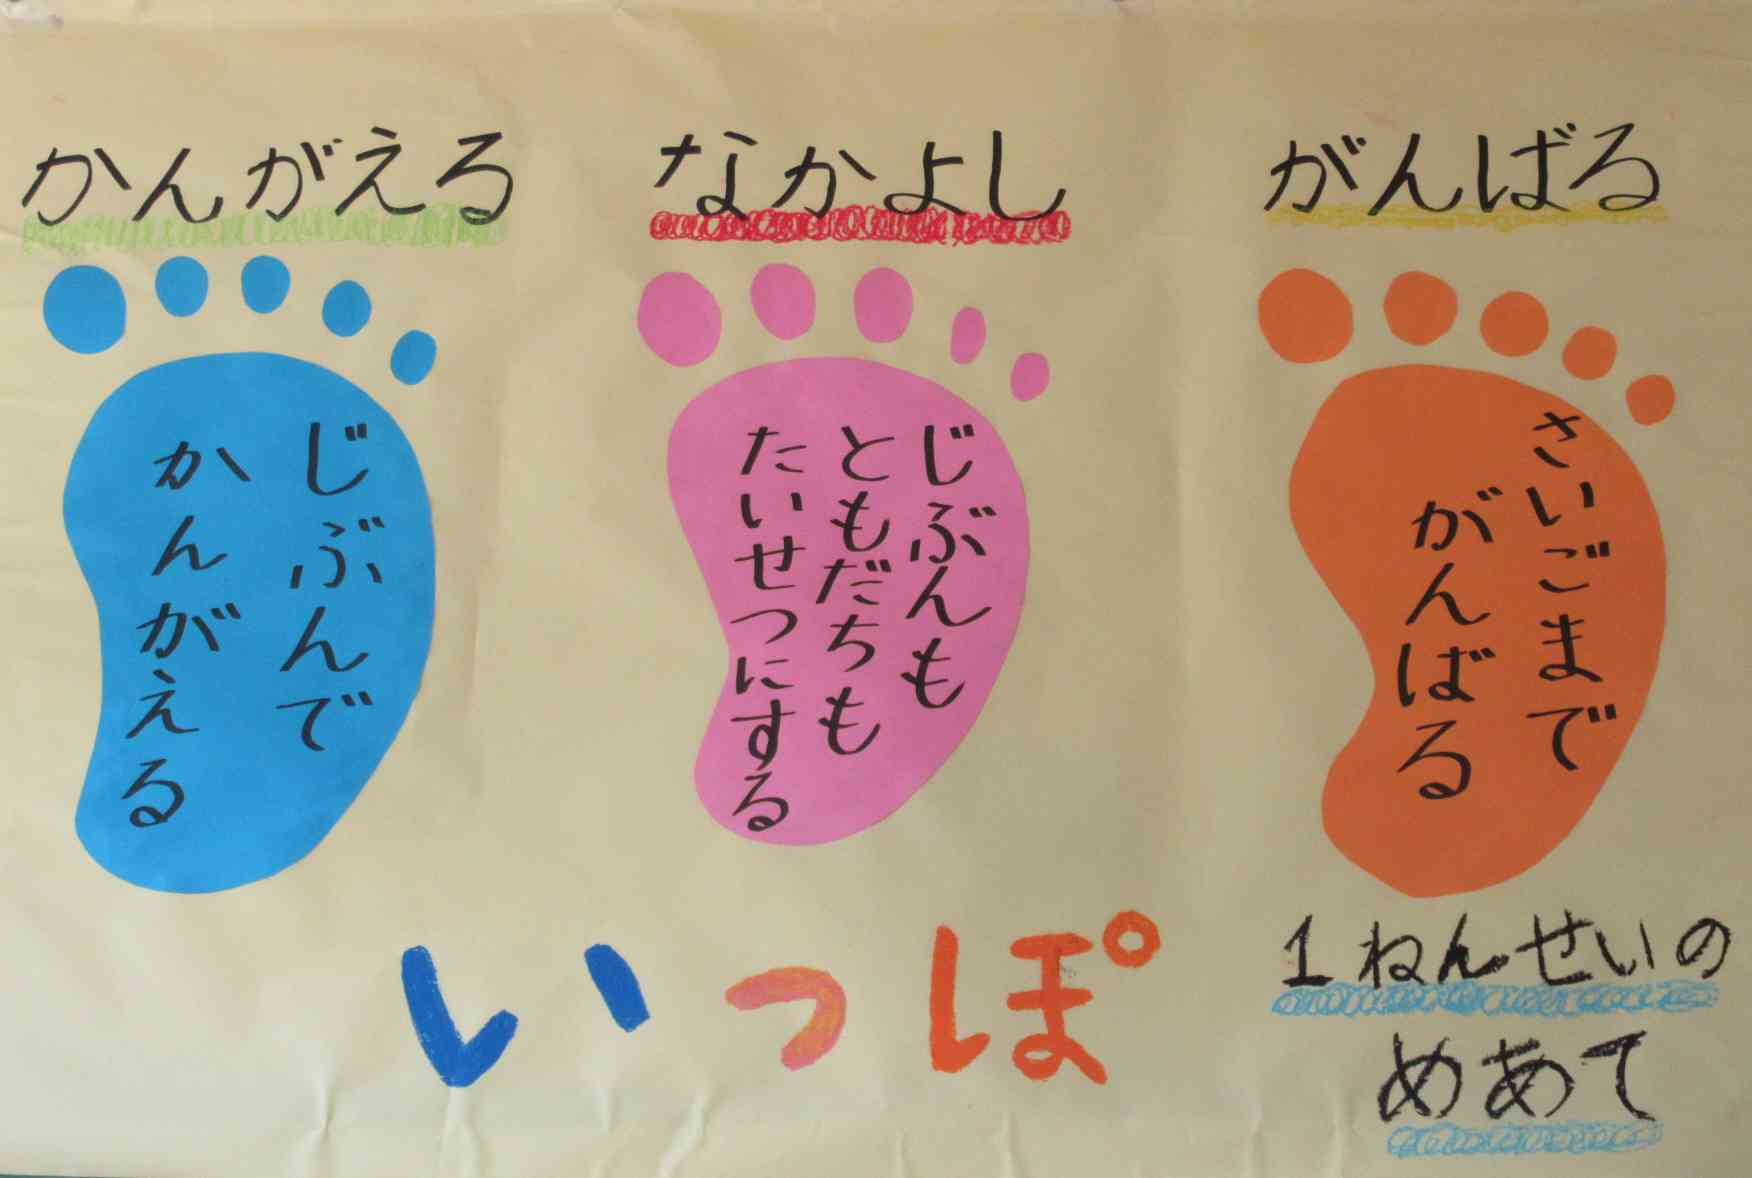 かんがえる
じぶんで
かんがえる
なかよし
じぶんも
ともだちも
たいせつにする
がんばる
さいごまで
がんばる
いっぽ
1ねんせいの
めあて